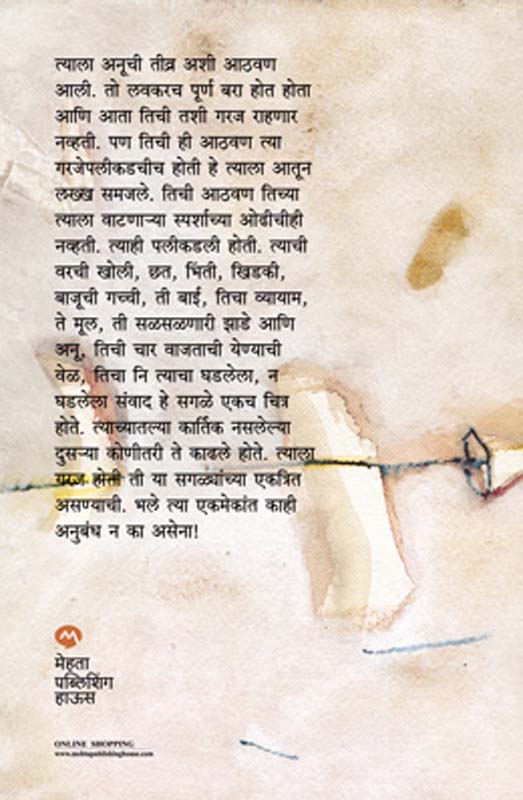 त्याला अनूची तीव्र अशी आठवण
आली. तो लवकरच पूर्ण बरा होत होता
आणि आता तिची तशी गरज राहणार
नव्हती. पण तिची ही आठवण त्या
गरजेपलीकडचीच होती हे त्याला आतून
लख्ख समजले. तिची आठवण तिच्या
त्याला वाटणाऱ्या स्पर्शाच्या ओढीचीही
नव्हती. त्याही पलीकडली होती. त्याची
वरची खोली, छत, भिंती, खिडकी,
बाजूची गच्ची, ती बाई, तिचा व्यायाम,
ते मूल, ती सळसळणारी झाडे आणि
अनू, तिची चार वाजताची येण्याची
वेळ, तिचा नि त्याचा घडलेला, न
घडलेला संवाद हे सगळे एकच चित्र
होते. त्याच्यातल्या कार्तिक नसलेल्या
दुसऱ्या कोणीतरी ते काढले होते. त्याला
गरज होती ती या सगळ्यांच्या एकत्रित
असण्याची. भले त्या एकमेकांत काही
अनुबंध न का असेना!
मेहता
पब्लिशिंग
हाऊस
ONLINE SHOPPING
www.mehtapublishinghouse.com